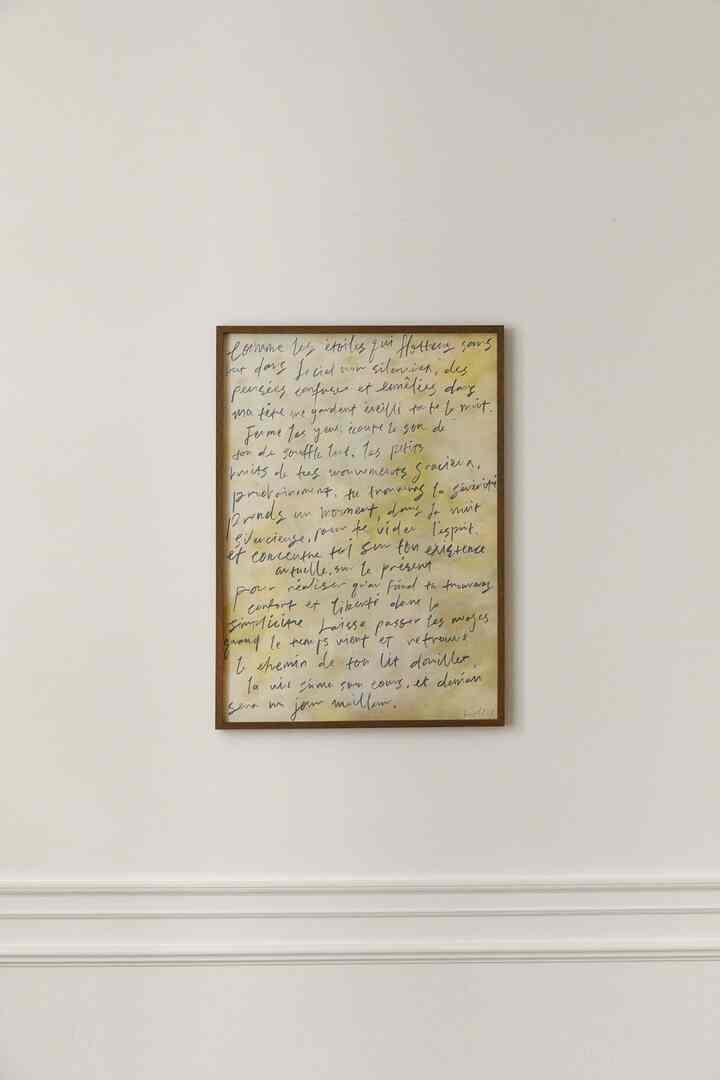 Comme les étoiles qui flottent sans
but dans le ciel non silencieux, des
pensées confuses et emêlées dans
ma tête me gardent éveillé toute la nuit.
Ferme les yeux, écoute le son de
ton de souffle lent, les petits
bruits de tes mouvements gracieux,
prochainement, tu trouveras la sérénité
prends un moment, dans la nuit
silencieuse, pour te vider l'esprit.
et concentre toi sur ton existence
actuelle, sur le présent
pour réaliser qu'au final tu trouveras
confort et liberté dans la
simplicité Laisse passer les nuages
quand le temps vient et retrouve
le chemin de ton lit douillet.
la vie suive son cours, et demain
sera un jour meilleur.